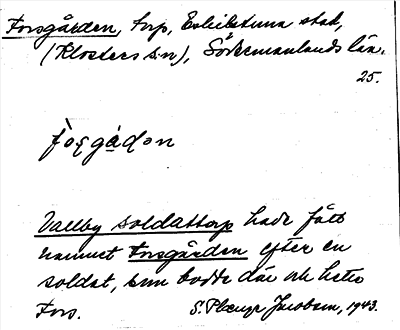 Forsgården, torp, Eskilstuna stad,
(Klosters s:n), Södermanlands län.
25.
fo̩ʂgåd̩ɔn
Vallby soldattorp hade fått
namnet Forsgården efter en
soldat, som bodde där och hette
Fors.
S. Jacobson, 1943.